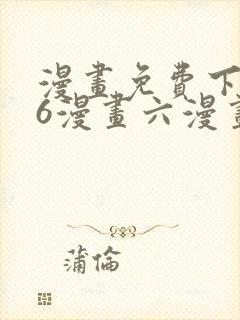 漫畫免費下
6漫畫六漫畫
蒲倫